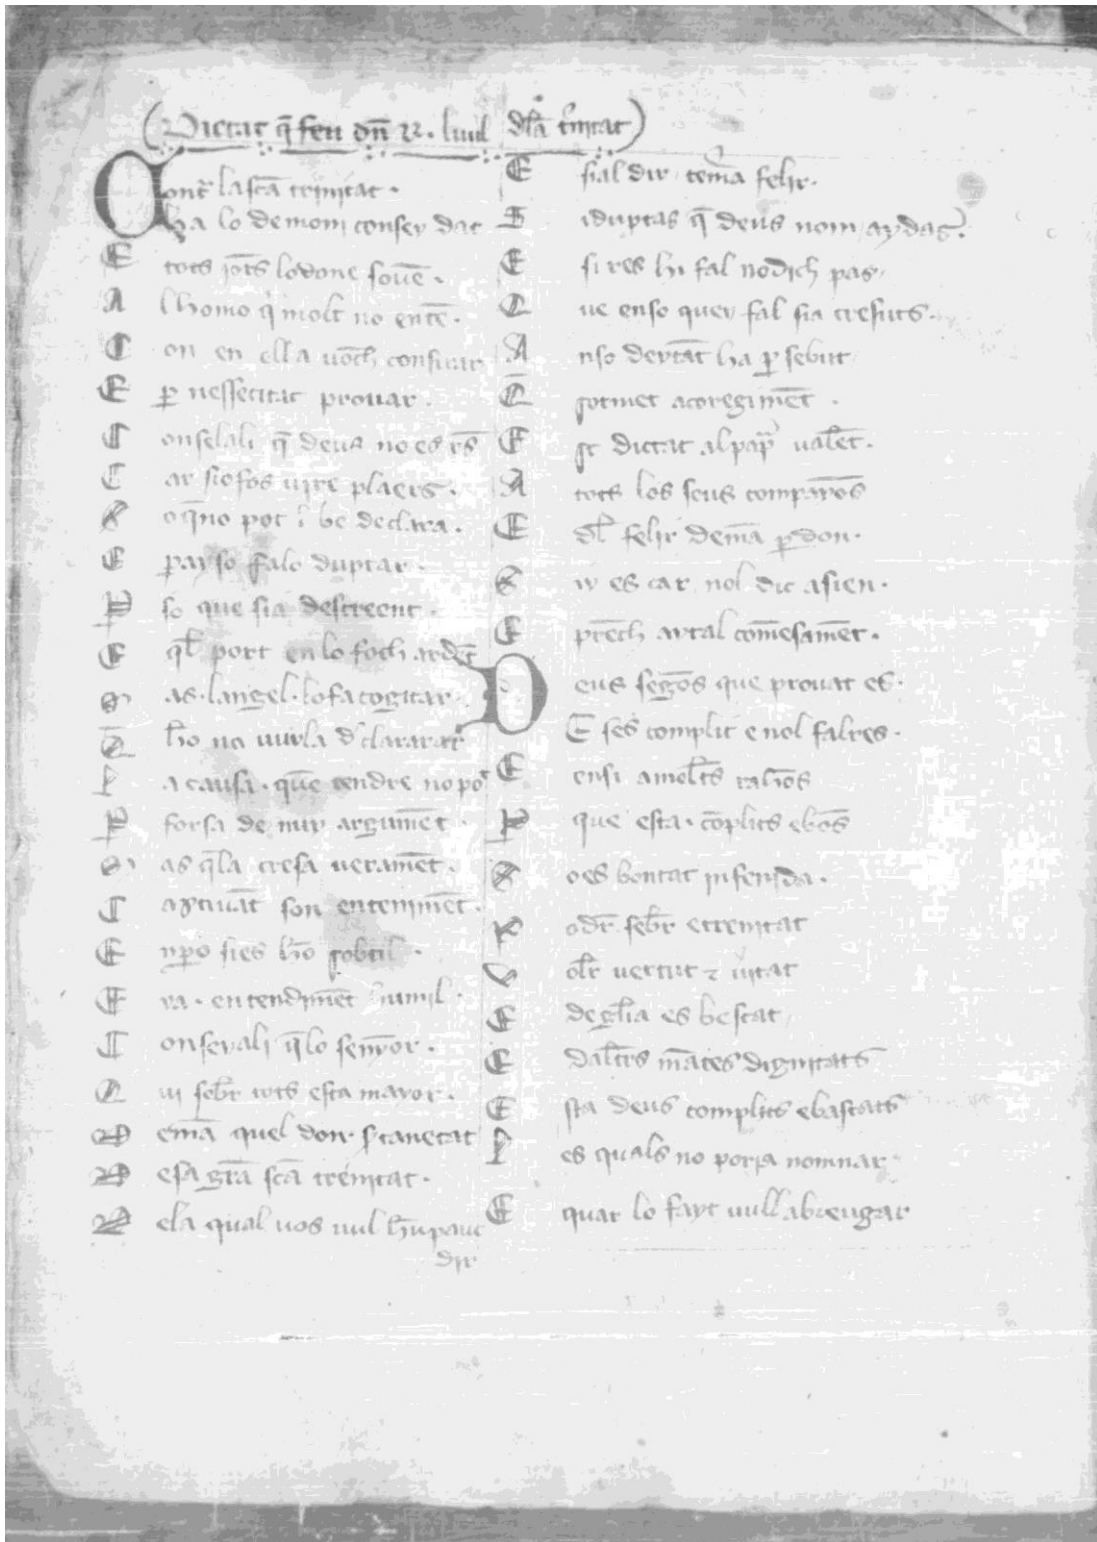 Dictat q̄ feu dn̄ R. lull dl̄a t'nitat
Cont̄ la scā trinitat .
ha lo demoni conseyl dat
E tots iorts lo done souē .
A lhomo q̄ molt no entē .
C on en ell a uoch consirar
E per nessecitat prouar .
C onsela li q̄ deus no es
C ar si o fos plaers .
S o q̄ no pot be declara .
E per ayso fa lo duptar .
P so que sia descreent .
E ql̄ port en lo foch ardēt
M as . langel . lo fa cogitar .
Q hō no uulla d'clarar
L a causa . quētendre no pot
P forsa de argumēt .
M as q̄ la cresa ueramēt .
C aytiuāt son entenimēt .
E npo si es hō sobtil .
E ya . entendimēt humil .
C onseyla li q̄ lo senyor .
Q ui sobr̄ tots esta mayor .
D emā quel don s̄tanetat
D e sa grā scā trenitat .
D e la qual uos uul
dir
E si al dir . temā felir .
S i duptas q̄ deus nom aydas .
E si res hi fal no dich pas
Q ue en so quey fal sia cresuts .
A nso deytāt ha per sebut
Q sotmet a coregimēt .
E st dictat al papa ualēt .
A tots los seus companyos
E dl̄ felir demā perdon .
S iy es car nol dic a sien .
E prēch aytal comēsamēt .
D eus segōs que prouat es .
E s es complit e nol fal res .
E en si a molts rahōs
P que esta . cōplits e bōs
S o es bontat infenida .
P odr̄ sebr̄ etrenitat
V olr̄ uertut ⁊ uitat
E de gl̄ia es bestat
E daltr̄s dignitats
E sta deus complits e bastats
L es quals no poria nomnar .
E quar lo fayt uull abreugar